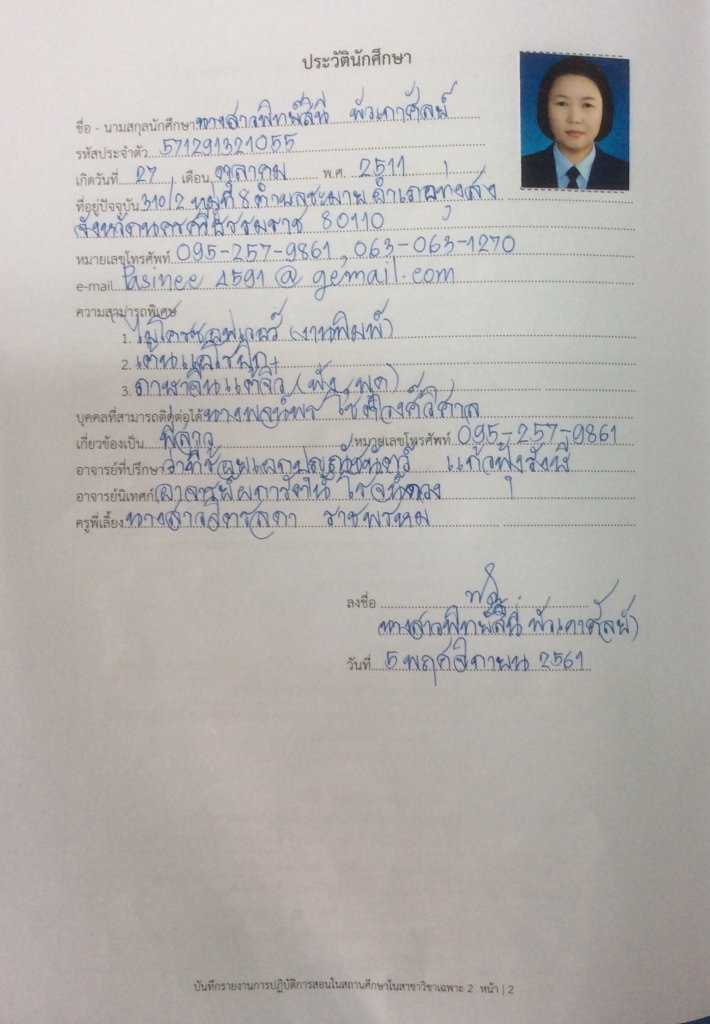 ประวัตินักศึกษา
ชื่อ - นามสกุลนักศึกษา นางสาวพิทย์สินี พัวเกาศัลย์
รหัสประจำตัว 571291321055
เกิดวันที่ 27 เดือน ตุลาคม พ.ศ. 2511
ที่อยู่ปัจจุบัน 310/2 หมู่ที่ 8 ตำบลชะมาย อำเภอทุ่งสง
จังหวัดนครศรีธรรมราช 80110
หมายเลขโทรศัพท์ 095-257-9861, 063-063-1270
e-mail Pasinee 4591 @ gemail.com
ความสามารถพิเศษ
1. ไมโครซอฟเวอร์ (งานพิมพ์)
2. เต้นแอโรบิก
3. ภาษาจีนแต้จิ๋ว (ฟัง, พูด)
บุคคลที่สามารถติดต่อได้ นางพจน์พร วิศาล
เกี่ยวข้องเป็น พี่สาว หมายเลขโทรศัพท์ 095-257-9861
อาจารย์ที่ปรึกษา ว่าที่ร้อยเอก แก้วฟุ้งรังษี
อาจารย์นิเทศก์ อาจารย์ โรจน์ดวง
ครูพี่เลี้ยง นางสาวจิตรลดา ราชพรหม
ลงชื่อ
(นางสาวพิทย์สินี พัวเกาศัลย์)
วันที่ 5 พฤศจิกายน 2561
บันทึกรายงานการปฏิบัติการสอนในสถานศึกษาในสาขาวิชาเฉพาะ 2 หน้า | 2